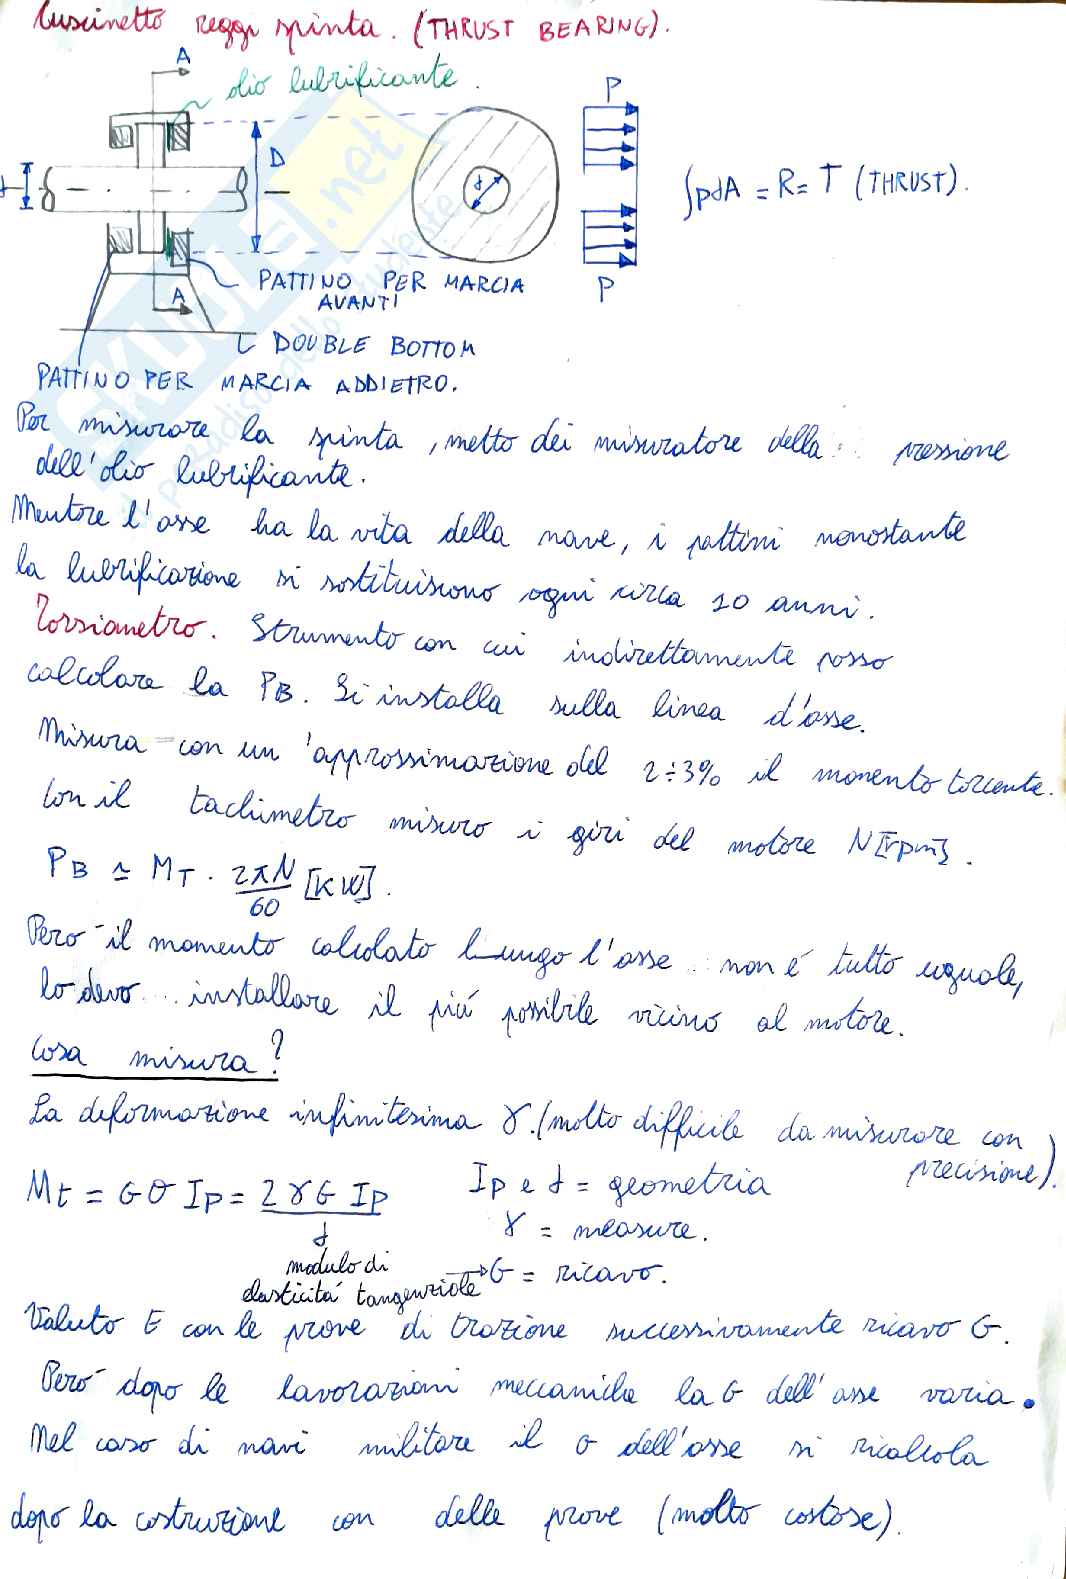 Cuscinetto reggi spinta. (THRUST BEARING).
A
olio lubrificante.
P
D
d
d
∫pdA = R = T (THRUST).
PATTINO PER MARCIA
AVANTI
A
P
DOUBLE BOTTOM
PATTINO PER MARCIA ADDIETRO.
Per misurare la spinta, metto dei misuratore della pressione
dell'olio lubrificante.
Mentre l'asse ha la vita della nave, i pattini nonostante
la lubrificazione si sostituiscono ogni circa 10 anni.
Torsiometro. Strumento con cui indirettamente posso
calcolare la PB. Si installa sulla linea d'asse.
Misura con un'approssimazione del 2÷3% il momento torcente.
Con il tachimetro misuro i giri del motore N[rpm].
PB ≃ MT · 2πN/60 [KW].
Però il momento calcolato lungo l'asse non é tutto uguale,
lo devo installare il piú possibile vicino al motore.
Cosa misura?
La deformazione infinitesima γ. (molto difficile da misurare con
precisione).
Mt = GθIp = 2γG Ip/d
Ip e d = geometria
γ = measure.
modulo di
elasticitá tangenziale → G = ricavo.
Valuto E con le prove di trazione successivamente ricavo G.
Però dopo le lavorazioni meccaniche la G dell'asse varia.
Nel caso di navi militare il G dell'asse si ricalcola
dopo la costruzione con delle prove (molto costose).
SKUOLA.net
il paradiso dello studente